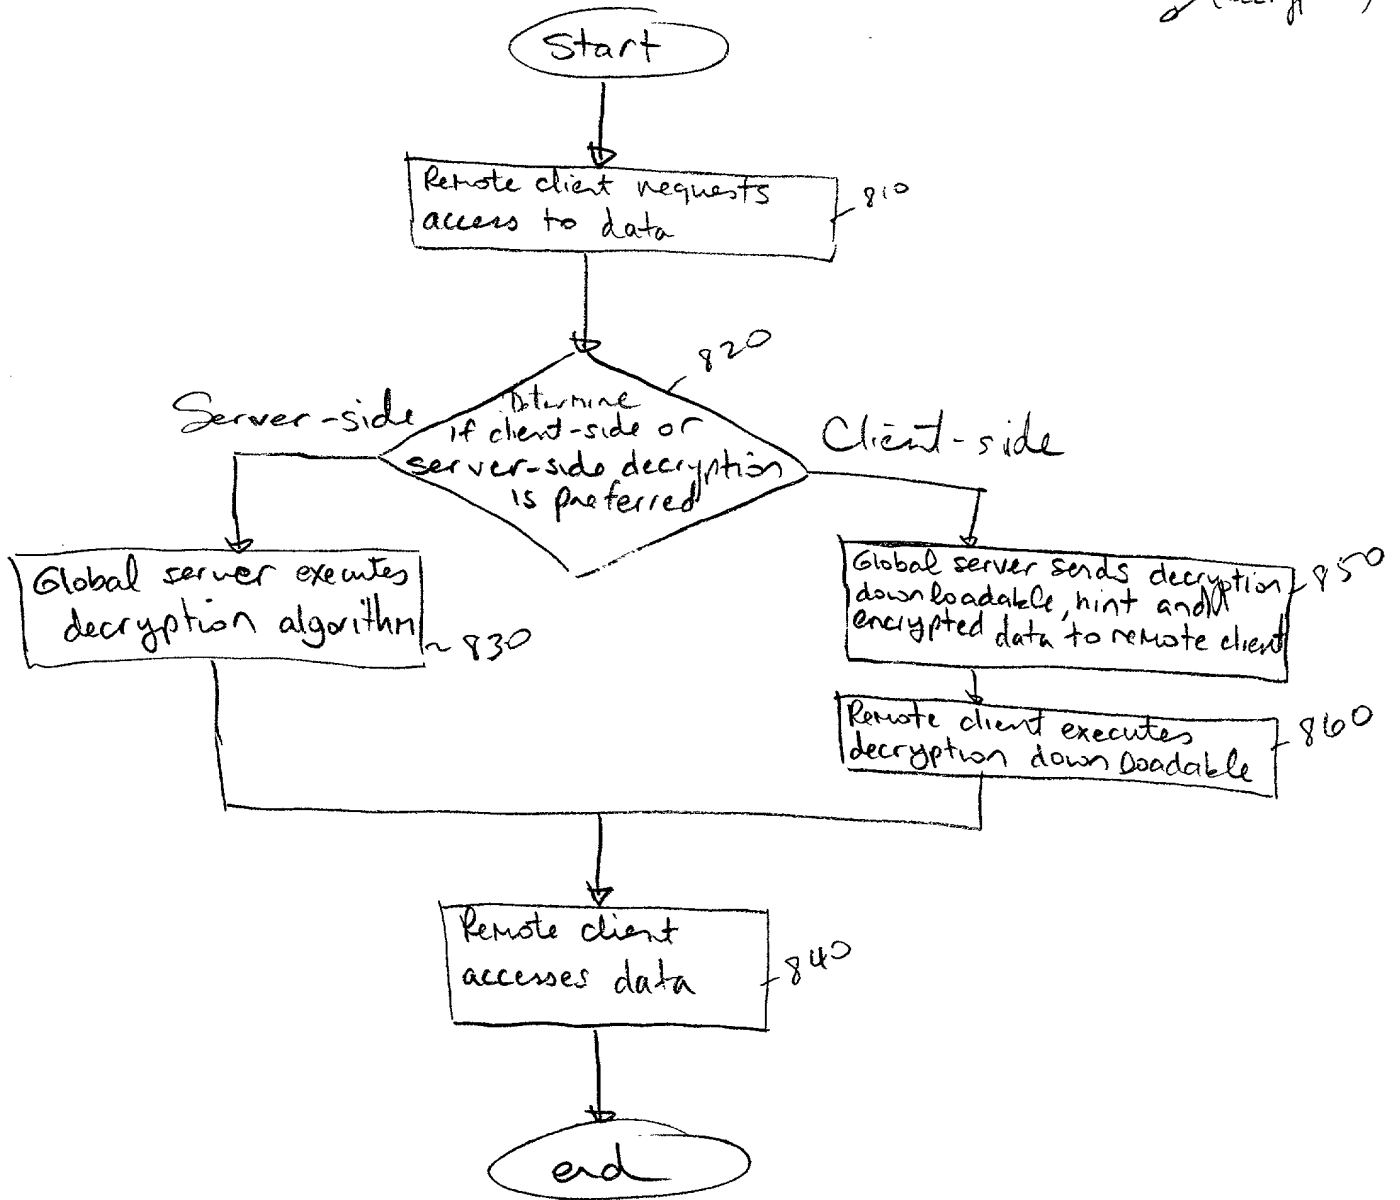 Start
Remote client requests
access to data
810
820
Server-side
Determine
if client-side or
server-side decryption
is preferred
Client-side
Global server executes
decryption algorithm
830
Global server sends decryption
downloadable, hint and
encrypted data to remote client
850
Remote client executes
decryption downloadable
860
Remote client
accesses data
840
end